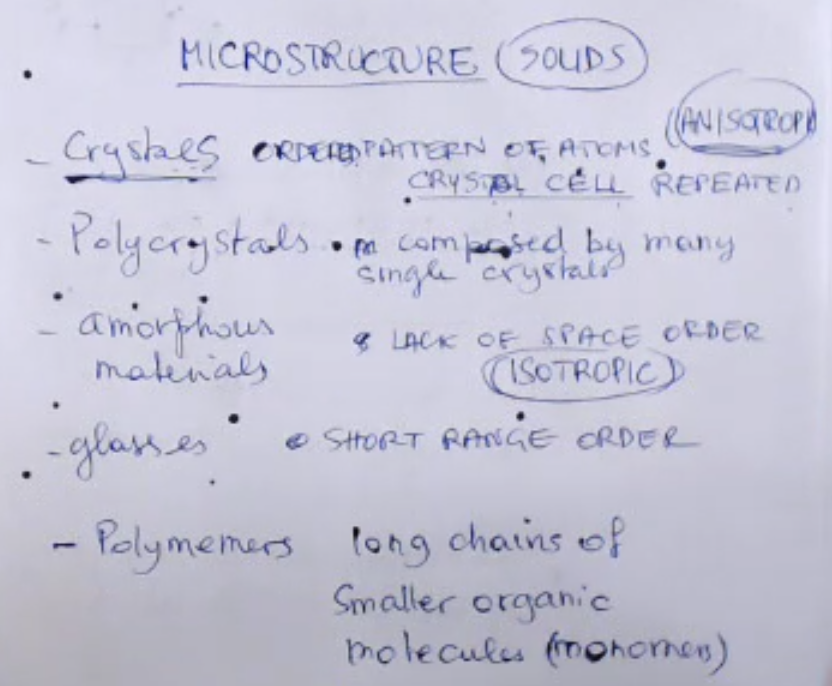 MICROSTRUCTURE SOLIDS
- Crystals ORDERED PATTERN OF ATOMS (ANISOTROPI
CRYSTAL CELL REPEATED
- Polycrystals • composed by many
single crystals
- amorphous • LACK OF SPACE ORDER
materials (ISOTROPIC)
- glasses • SHORT RANGE ORDER
- Polymemers long chains of
smaller organic
molecules (monomers)